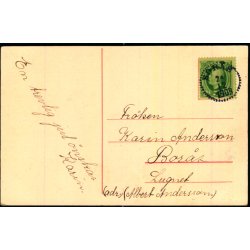 En trevlig jul önskas
Karin.
Fröken
Karin Andersson
Borås
Lugnet
(adr. Albert Andersson)